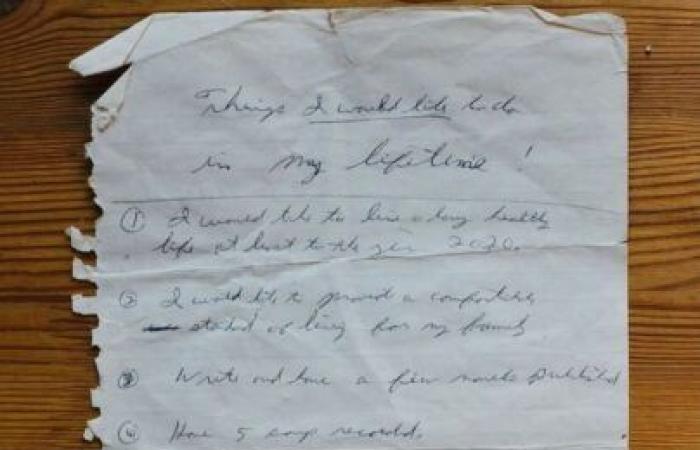 Things I would like to do
in my lifetime!
① I would like to live a long healthy
life at least to the year 2020.
② I would like to provid a comfortable
standard of living for my family
③ Write and have a few novels published
④ Have 5 songs recorded.